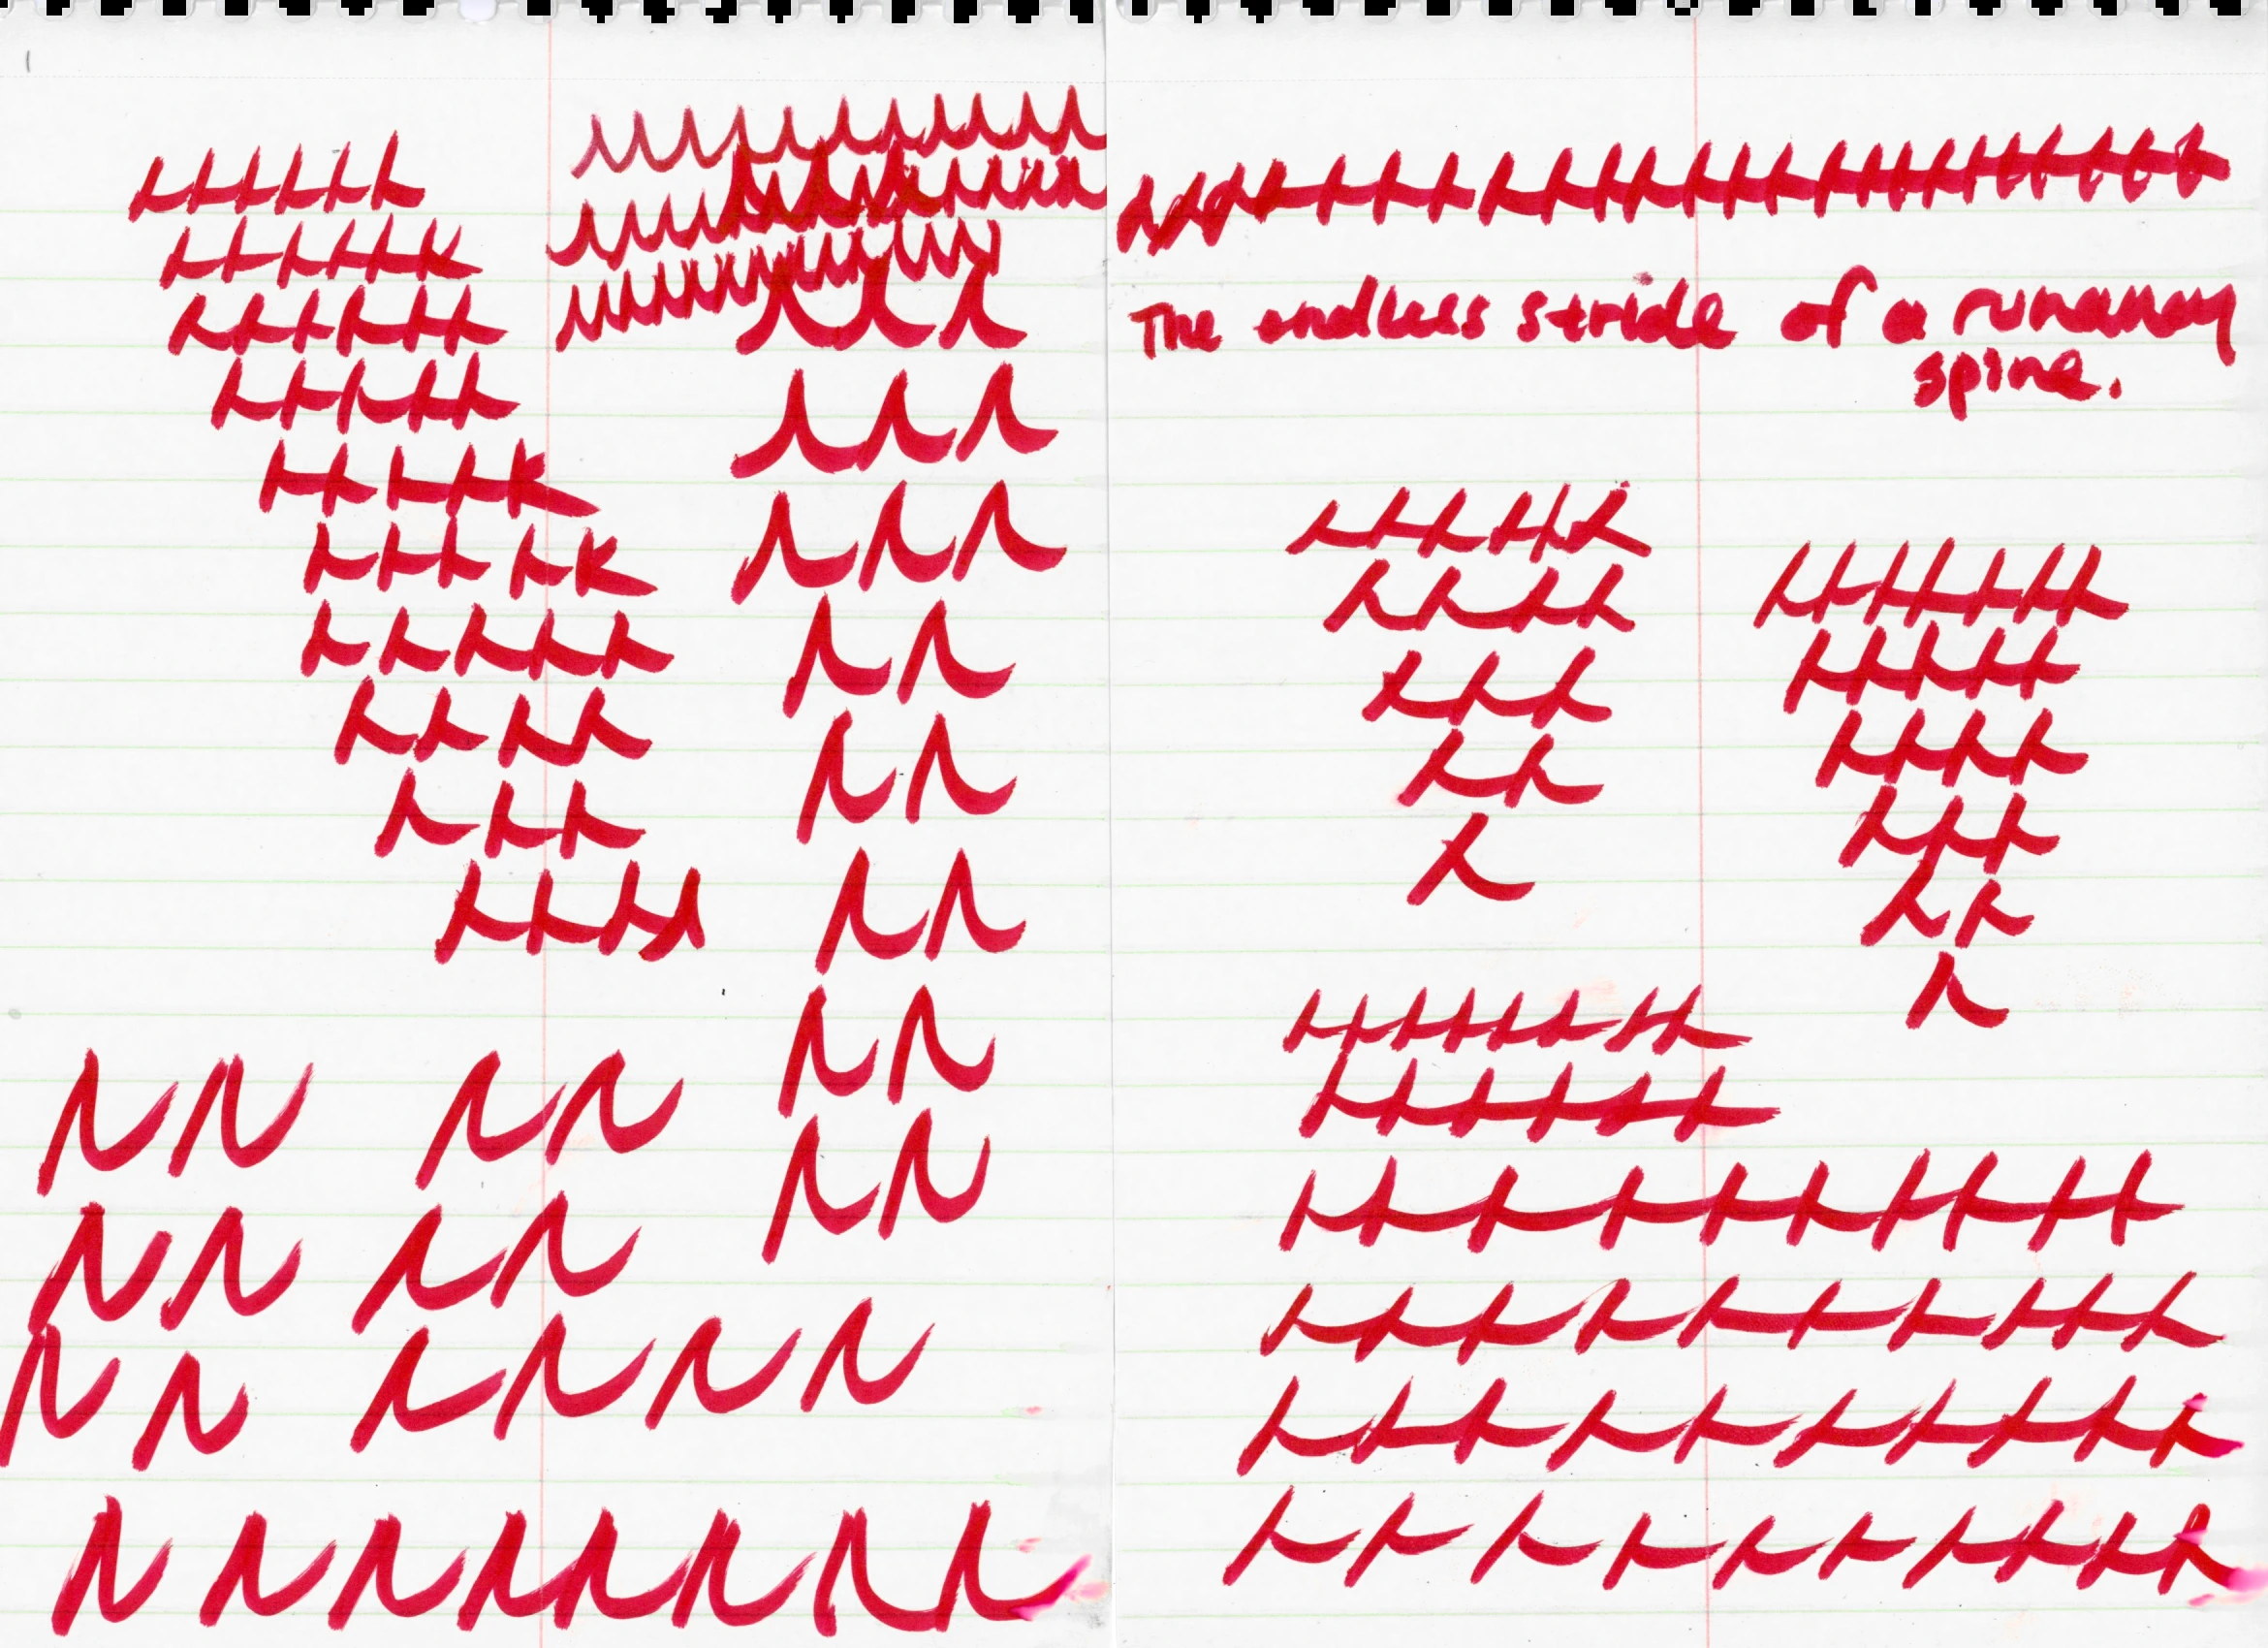 The endless stride of a runaway
spine.